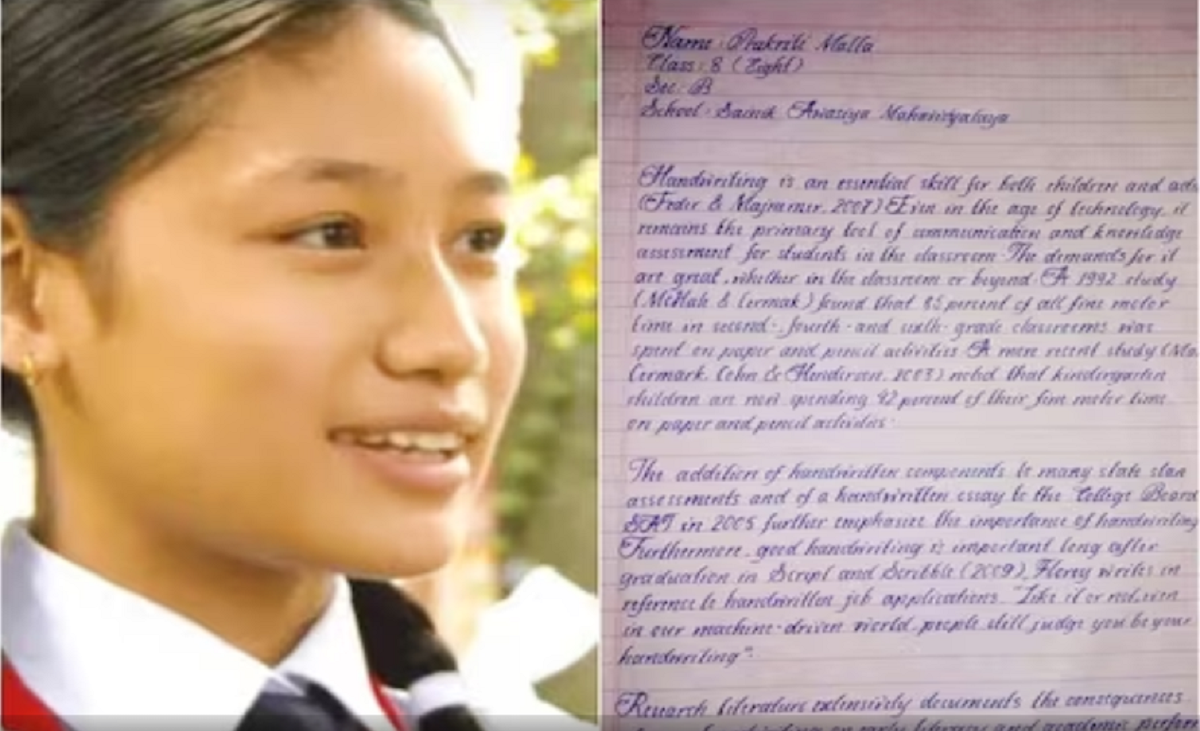 Name: Prakriti Malla
Class: 8 (Eight)
Sec: B
School: Sainik Awasiya Mahavidyalaya
Handwriting is an essential skill for both children and adu
(Feder & Majnemer, 2007) Even in the age of technology, it
remains the primary tool of communication and knowledge
assessment for students in the classroom. The demands for it
are great, whether in the classroom or beyond. A 1992 study
(McHale & Cermak) found that 85 percent of all fine motor
time in second-, fourth- and sixth- grade classrooms was
spent on paper and pencil activities. A more recent study (Ma
Cermark, Cohn & Henderson, 2003) noted that kindergarten
children are now spending 42 percent of their fine motor time
on paper and pencil activities.
The addition of handwritten components to many state stan
assessments and of a handwritten essay to the College Board
SAT in 2005 further emphasize the importance of handwriting
Furthermore, good handwriting is important long after
graduation in Script and Scribble (2009), Florey writes in
reference to handwritten job applications. "Like it or not, even
in our machine-driven world, people still judge you by your
handwriting".
Research literature extensively documents the consequences
handwriting on early literacy and academic perfor